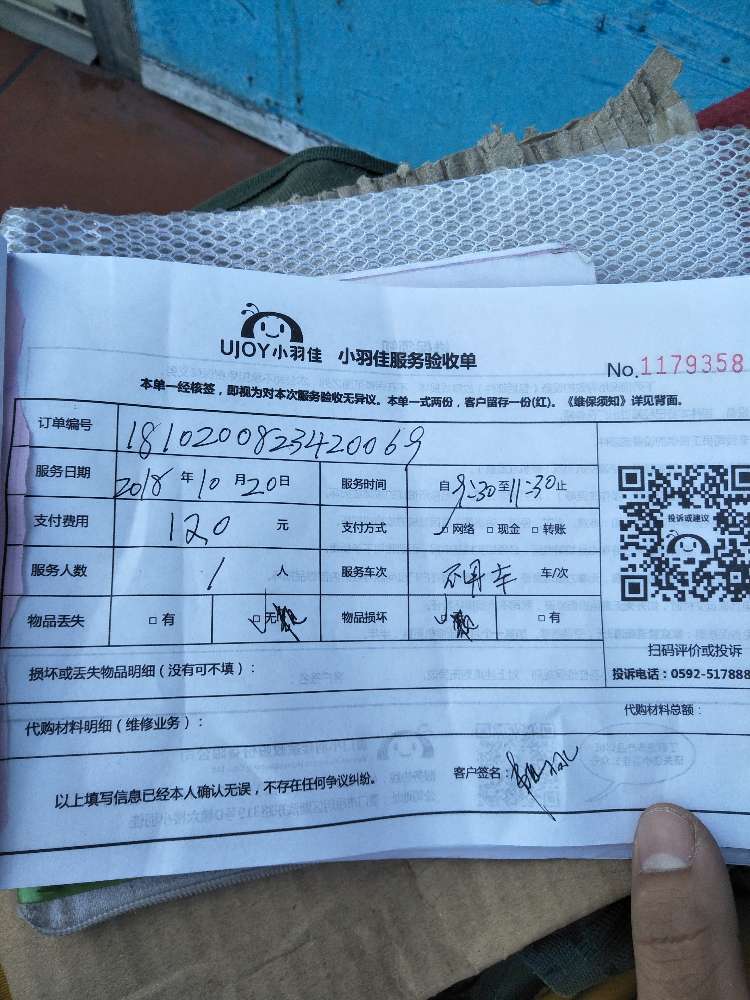 UJOY小羽佳 小羽佳服务验收单
No.1179358
本单一经核签，即视为对本次服务验收无异议。本单一式两份，客户留存一份(红)。《维保须知》详见背面。
订单编号 1810200823420069
服务日期 2018 年 10 月 20 日 服务时间 自 9:30 至 11:30 止
支付费用 120 元 支付方式 □网络 □现金 □转账
投诉或建议
服务人数 1 人 服务车次 不用车 车/次
物品丢失 □有 □无 物品损坏 □有
扫码评价或投诉
损坏或丢失物品明细（没有可不填）： 投诉电话：0592-517888
代购材料明细（维修业务）： 代购材料总额：
以上填写信息已经本人确认无误，不存在任何争议纠纷。 客户签名：